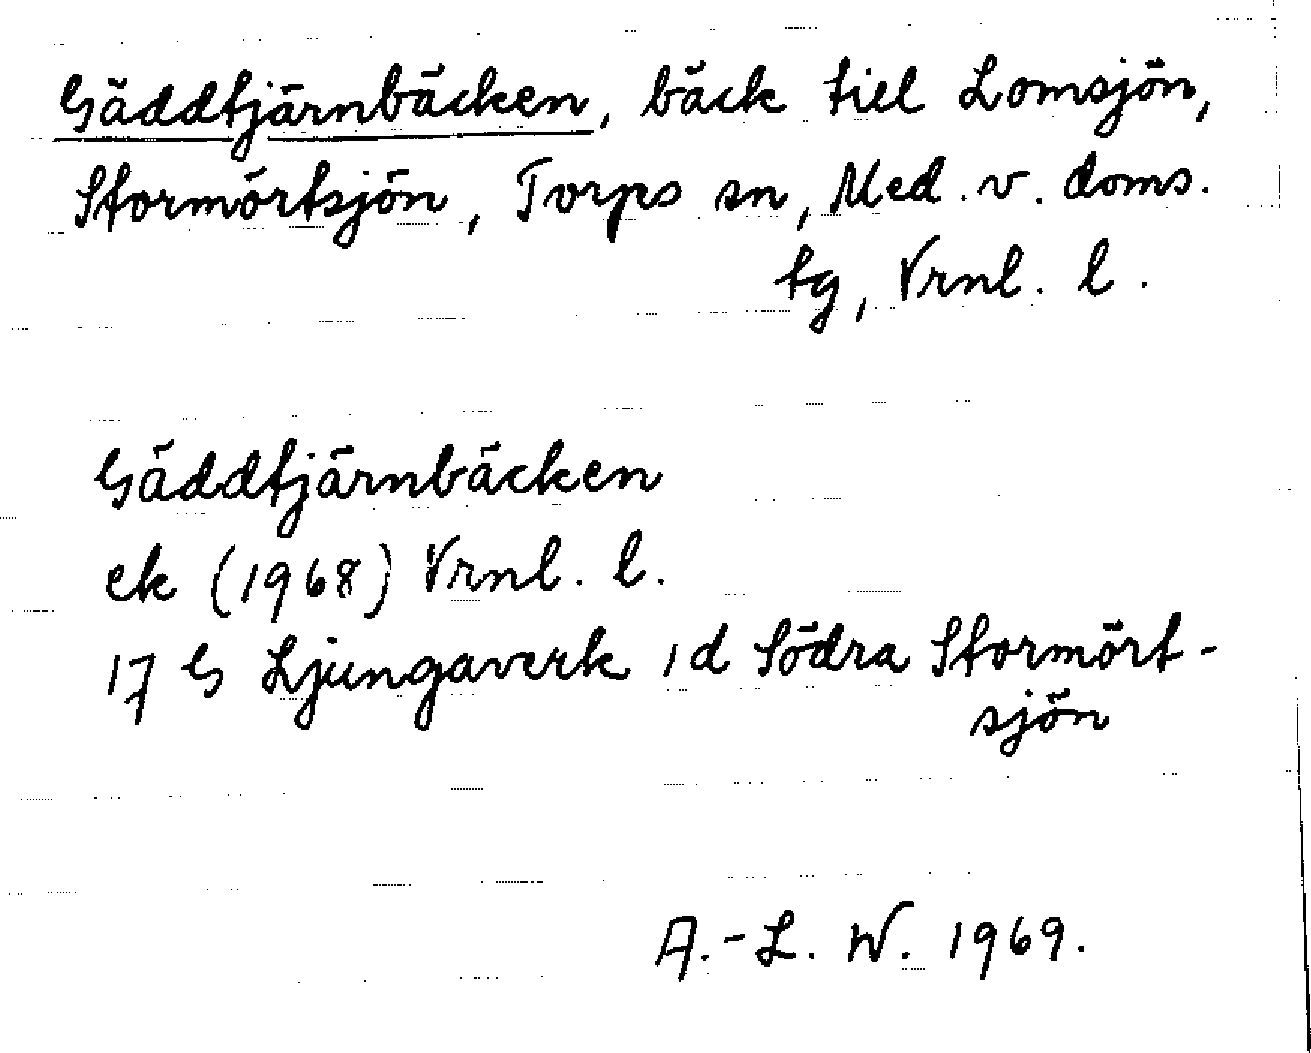 Gäddtjärnbäcken, bäck till Lomsjön,
Stormörtsjön, Torps sn, Med. v. doms.
tg, Vrnl. l.
Gäddtjärnbäcken
ek (1968) Vrnl. l.
17 G Ljungaverk 1d Södra Stormört-
sjön
A.-L. W. 1969.